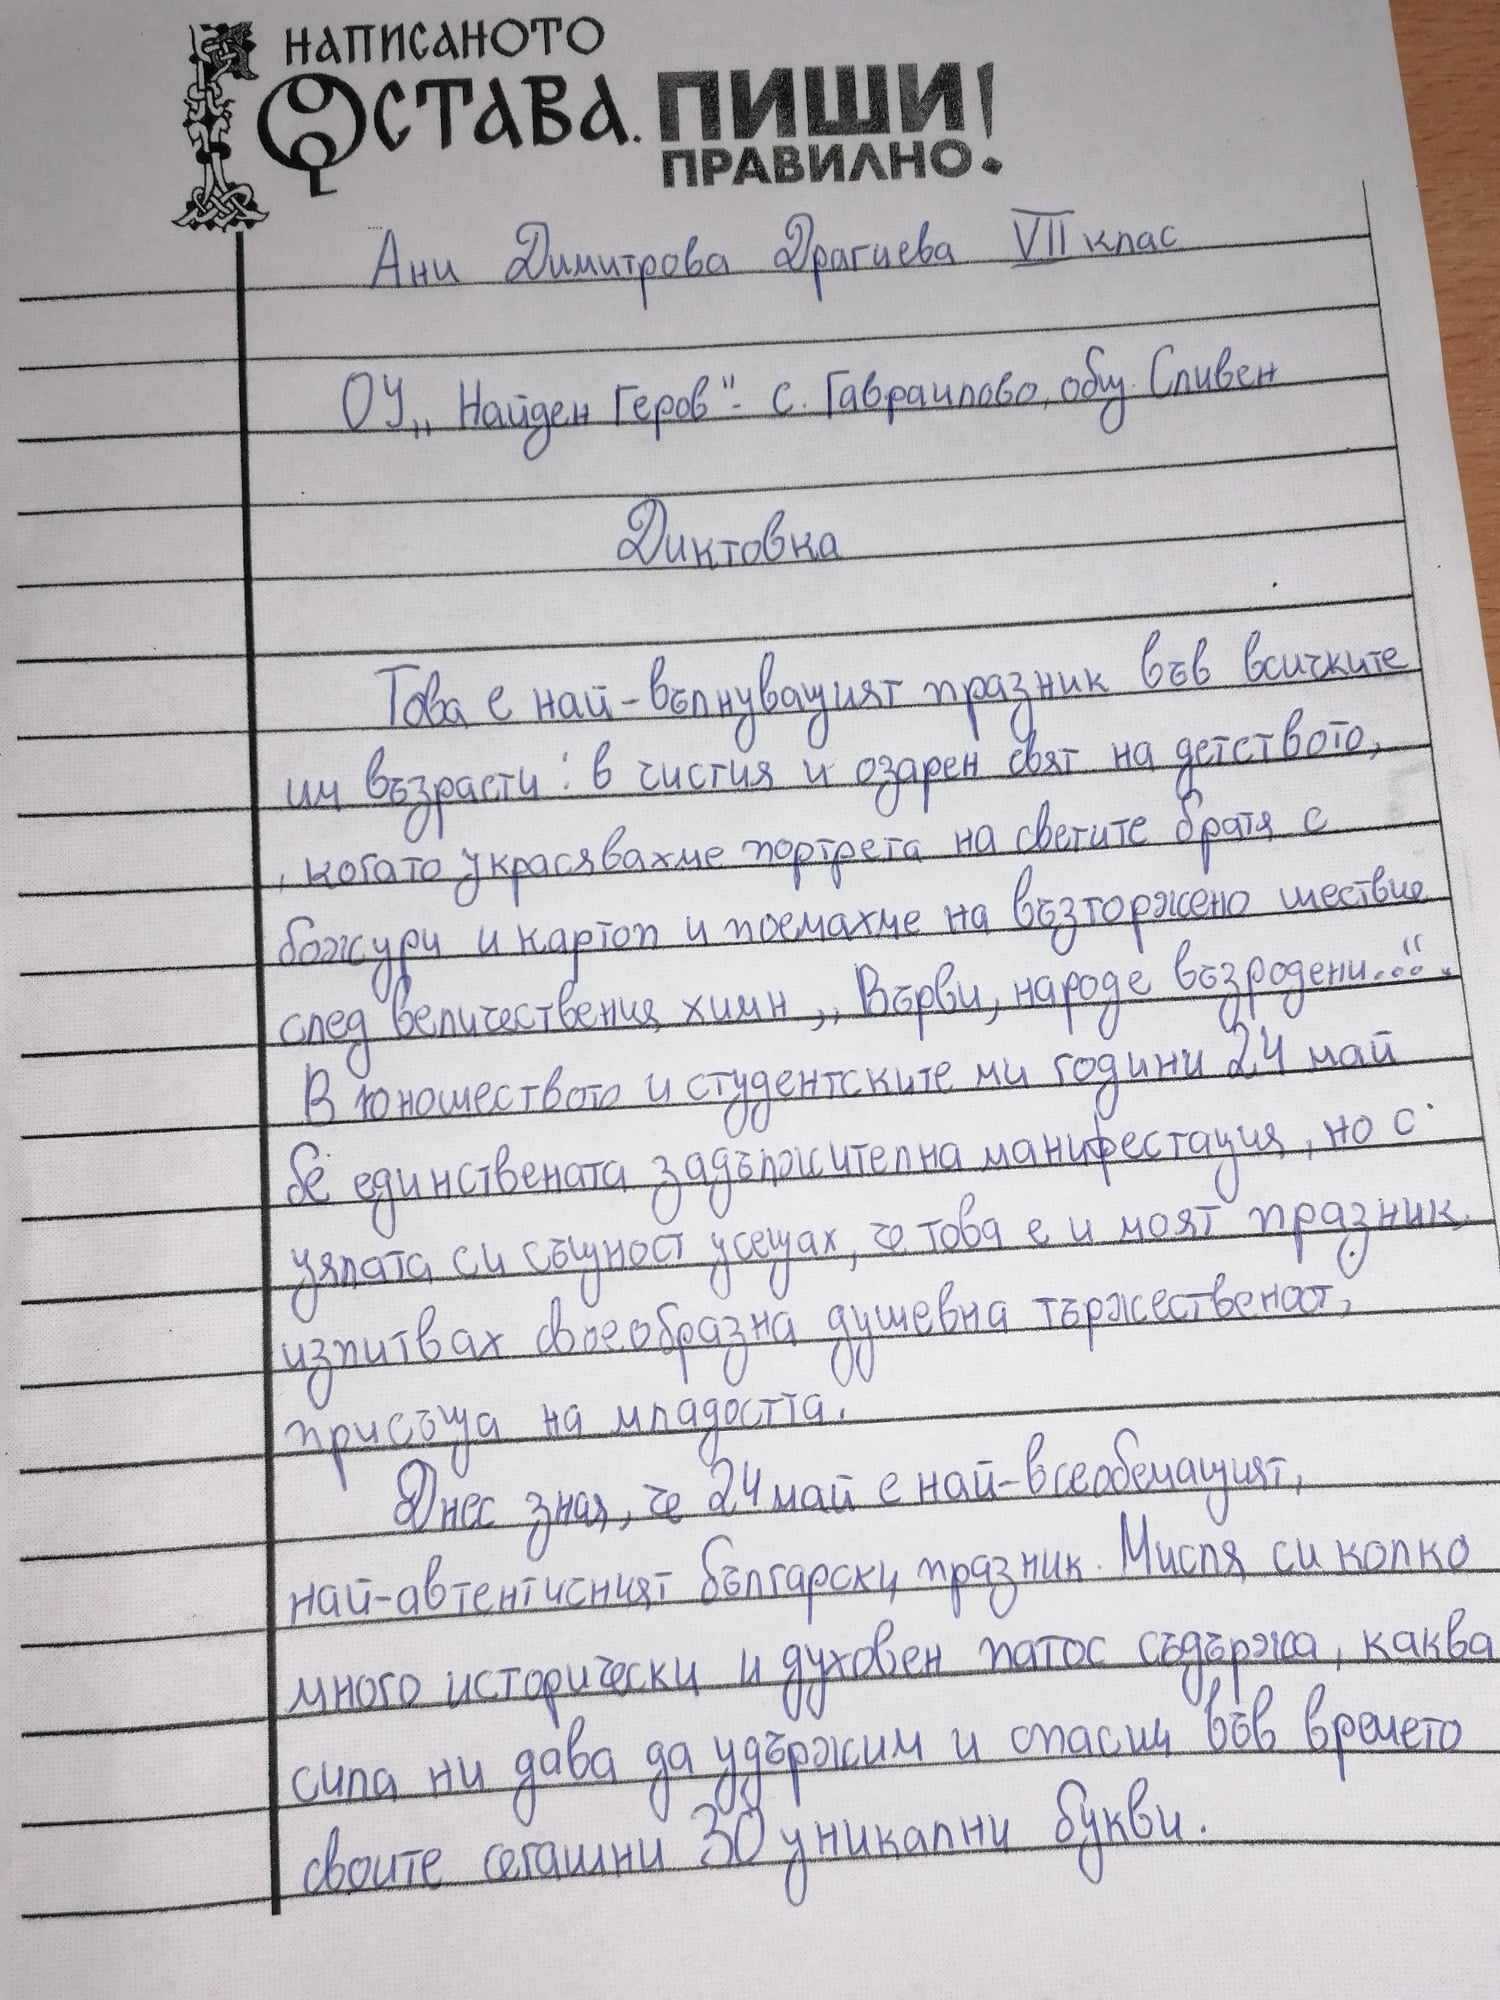 НАПИСАНОТО
ОСТАВА. ПИШИ
ПРАВИЛНО!
Ани Димитрова Драгиева VII клас
ОУ „Найден Геров"- с. Гавраилово, общ. Сливен
Диктовка
Това е най-вълнуващият празник във всичките
ми възрасти: в чистия и озарен свят на детството,
, когато украсявахме портрета на светите братя с
божури и картоп и поемахме на възторжено шествие
след величествения химн „Върви, народе възродени...".
В юношеството и студентските ми години 24 май
бе единствената задължителна манифестация, но с
цялата си същност усещах, че това е и моят празник.
изпитвах своеобразна душевна тържественост,
присъща на младостта.
Днес зная, че 24 май е най-всеобемащият,
най-автентисният български празник. Мисля си колко
много исторически и духовен патос съдържа, каква
сила ни дава да удържим и спасим във времето
своите сегашни 30 уникални букви.